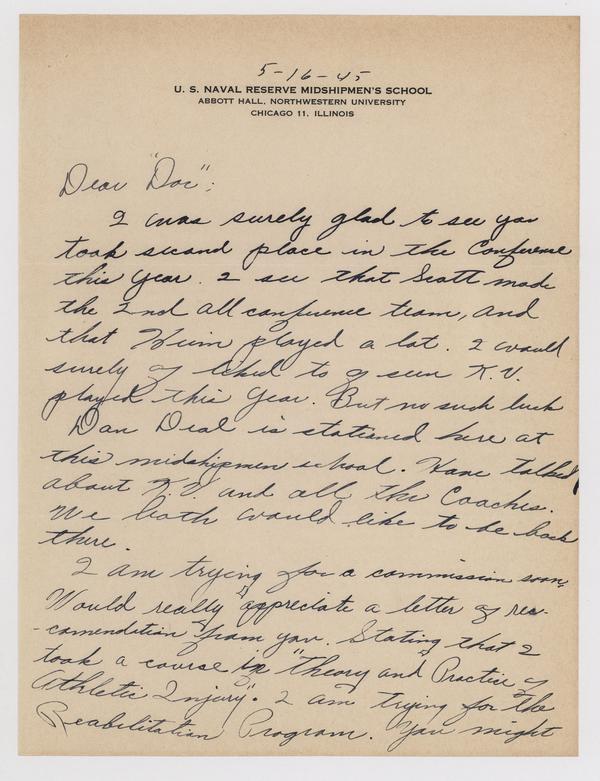 5-16-45
U. S. NAVAL RESERVE MIDSHIPMEN'S SCHOOL
ABBOTT HALL, NORTHWESTERN UNIVERSITY
CHICAGO 11, ILLINOIS
Dear "Doc":
I was surely glad to see you
took second place in the Conference
this year. I see that Scott made
the 2nd all conference team, and
that Heim played a lot. I would
surely of liked to of seen K.U.
played this year. But no such luck
Dan Deal is stationed here at
this midshipmen school. Have talked
about K.U. and all the Coaches.
We both would like to be back
there.
I am trying for a commission soon,
Would really appreciate a letter of rec-
-comendation from you. Stating that I
took a course in "Theory and Practice of
Athletic Injury". I am trying for the
Reabilitation Program. You might